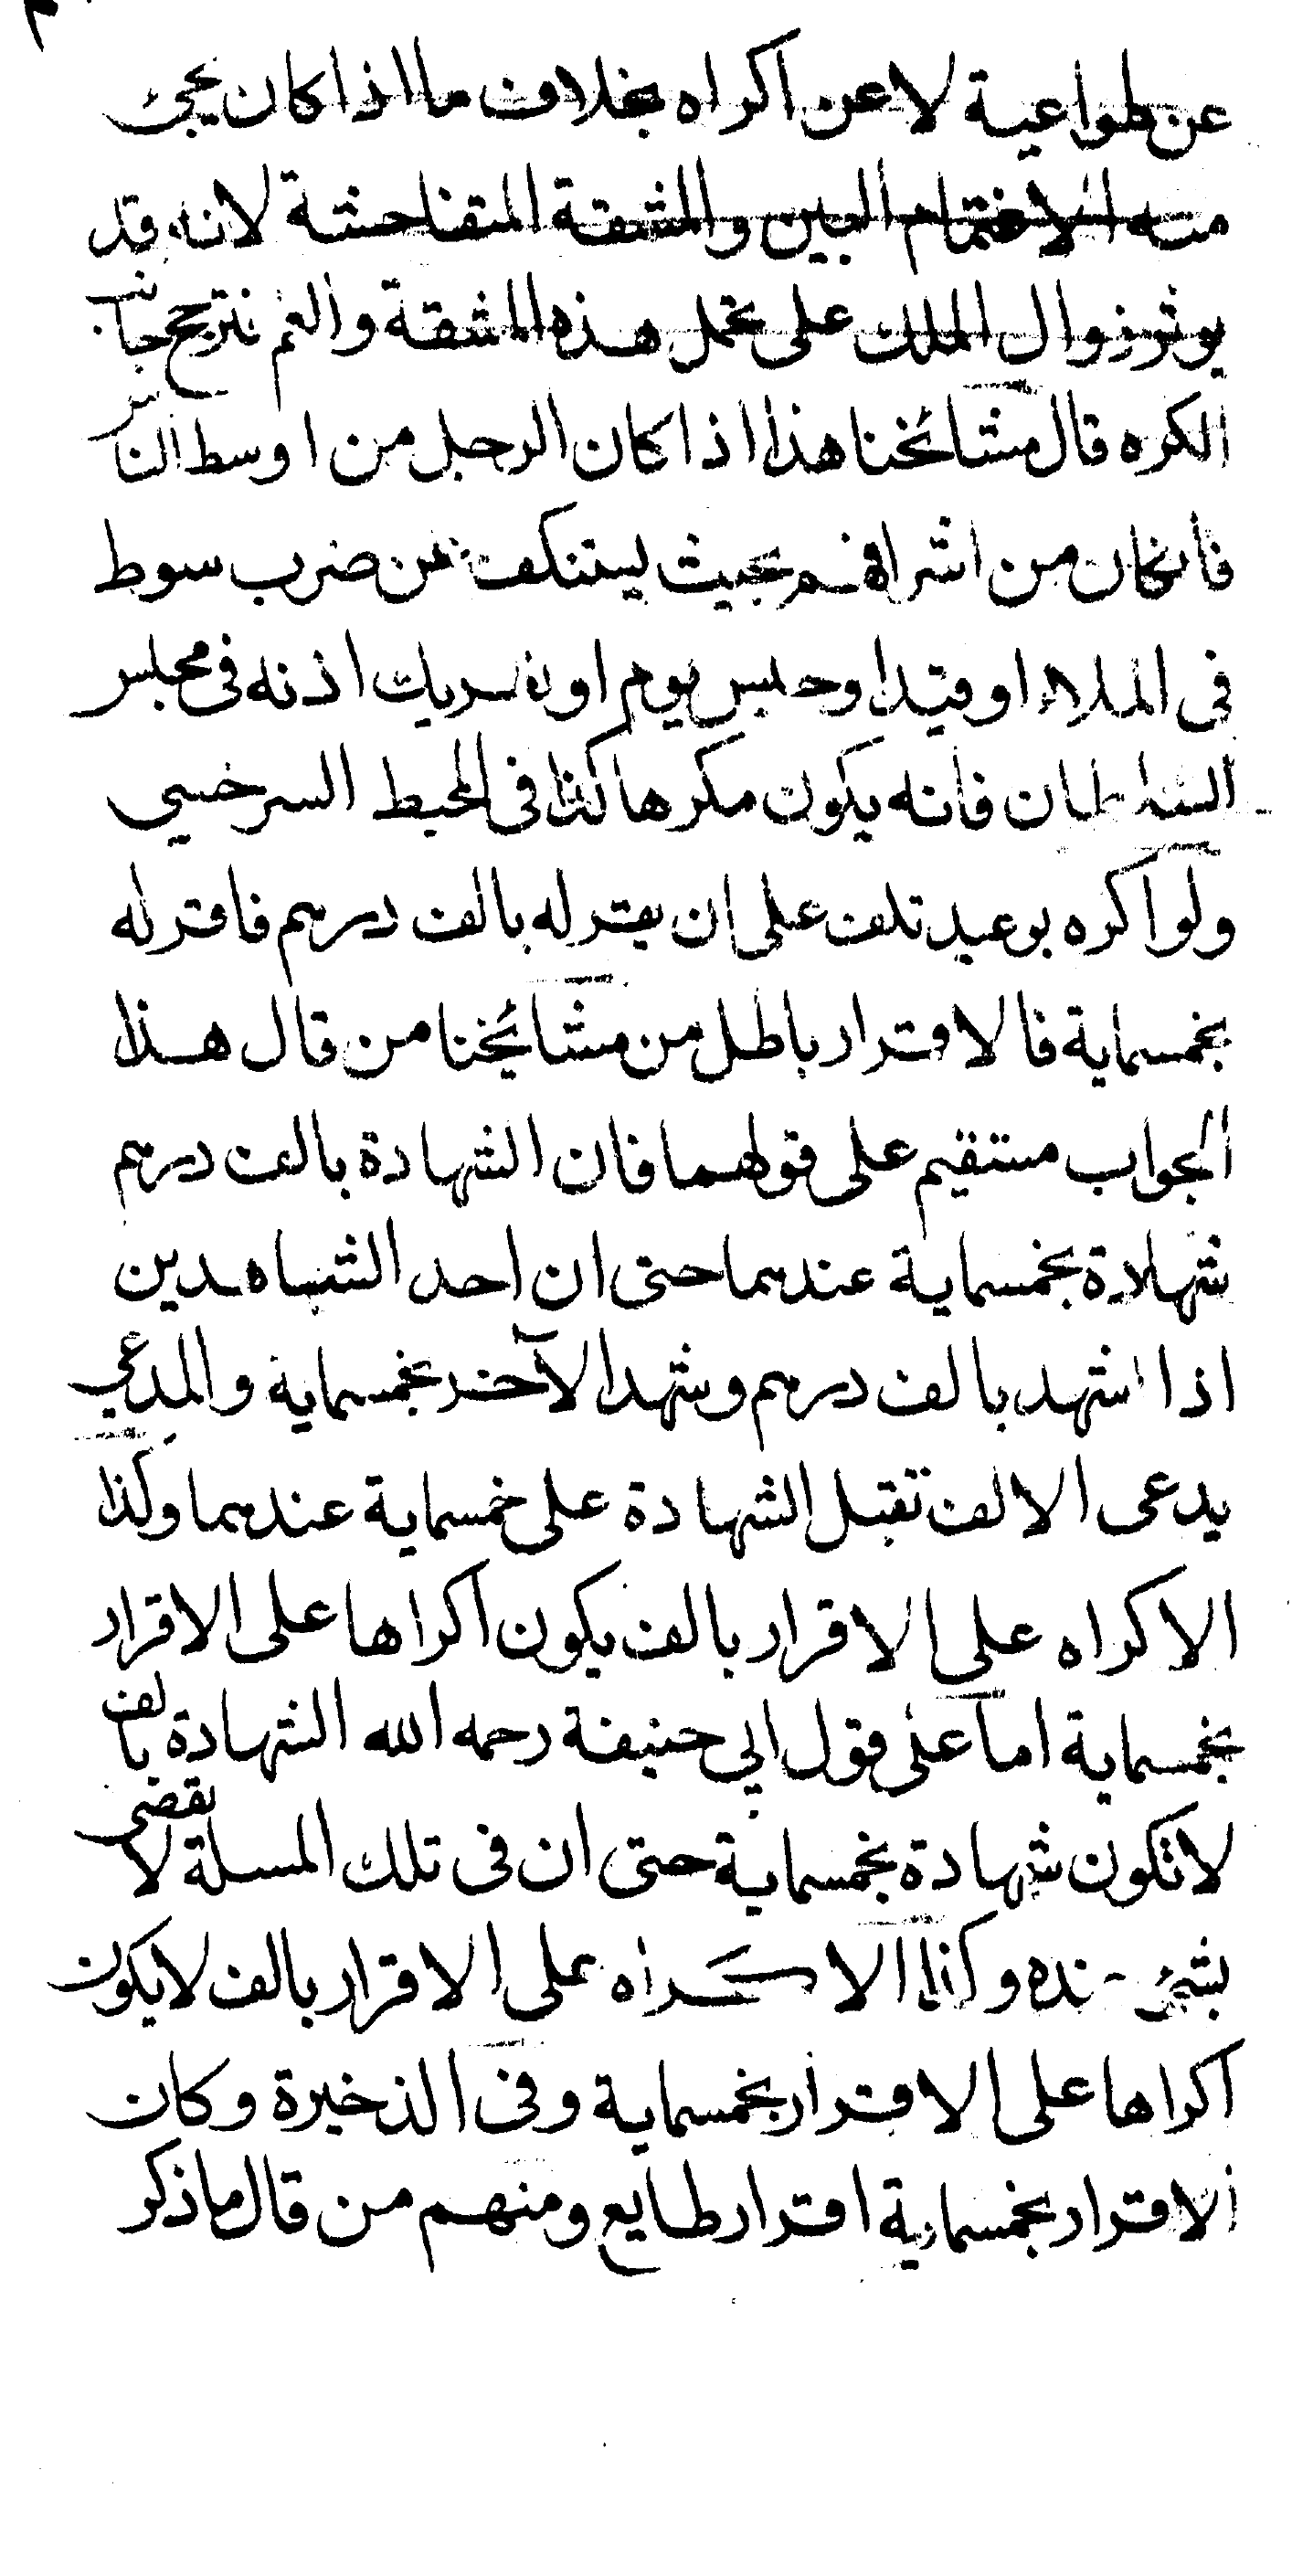 عن طواعية لا عن اكراه بخلاف ما اذا كان يجئ
منه الاغتمام البين والمشقة المتفاحشة لانه قد
يوثر زوال الملك على تحمل هذه المشقة والغم فترجح جانب
الكره قال مشائخنا هذا اذا كان الرجل من اوسط الناس
فان كان من اشرافهم بحيث يستنكف عن ضرب سوط
فى الملاء او قيد او حبس يوم او اذنه فى مجلس
السلطان فانه يكون مكرها كذا فى المحيط السرخسي
ولو اكره بوعيد تلف على ان يقر له بالف درهم فاقر له
بخمسماية فالاقرار باطل من مشائخنا من قال هذا
الجواب مستقيم على قولهما فان الشهادة بالف درهم
شهادة بخمسماية عندهما حتى ان احد الشاهدين
اذا شهد بالف درهم وشهد الآخر بخمسماية والمدعي
يدعى الالف تقبل الشهادة على خمسماية عندهما وكذا
الاكراه على الاقرار بالف يكون اكراها على الاقرار
بخمسماية اما على قول ابي حنيفة رحمه الله الشهادة بالف
لا تكون شهادة بخمسماية حتى ان فى تلك المسلة لا يقضى
بشئ عنده وكذا الاكراه على الاقرار بالف لا يكون
اكراها على الاقرار بخمسماية وفى الذخيرة وكان
الاقرار بخمسماية اقرار طايع ومنهم من قال ما ذكر